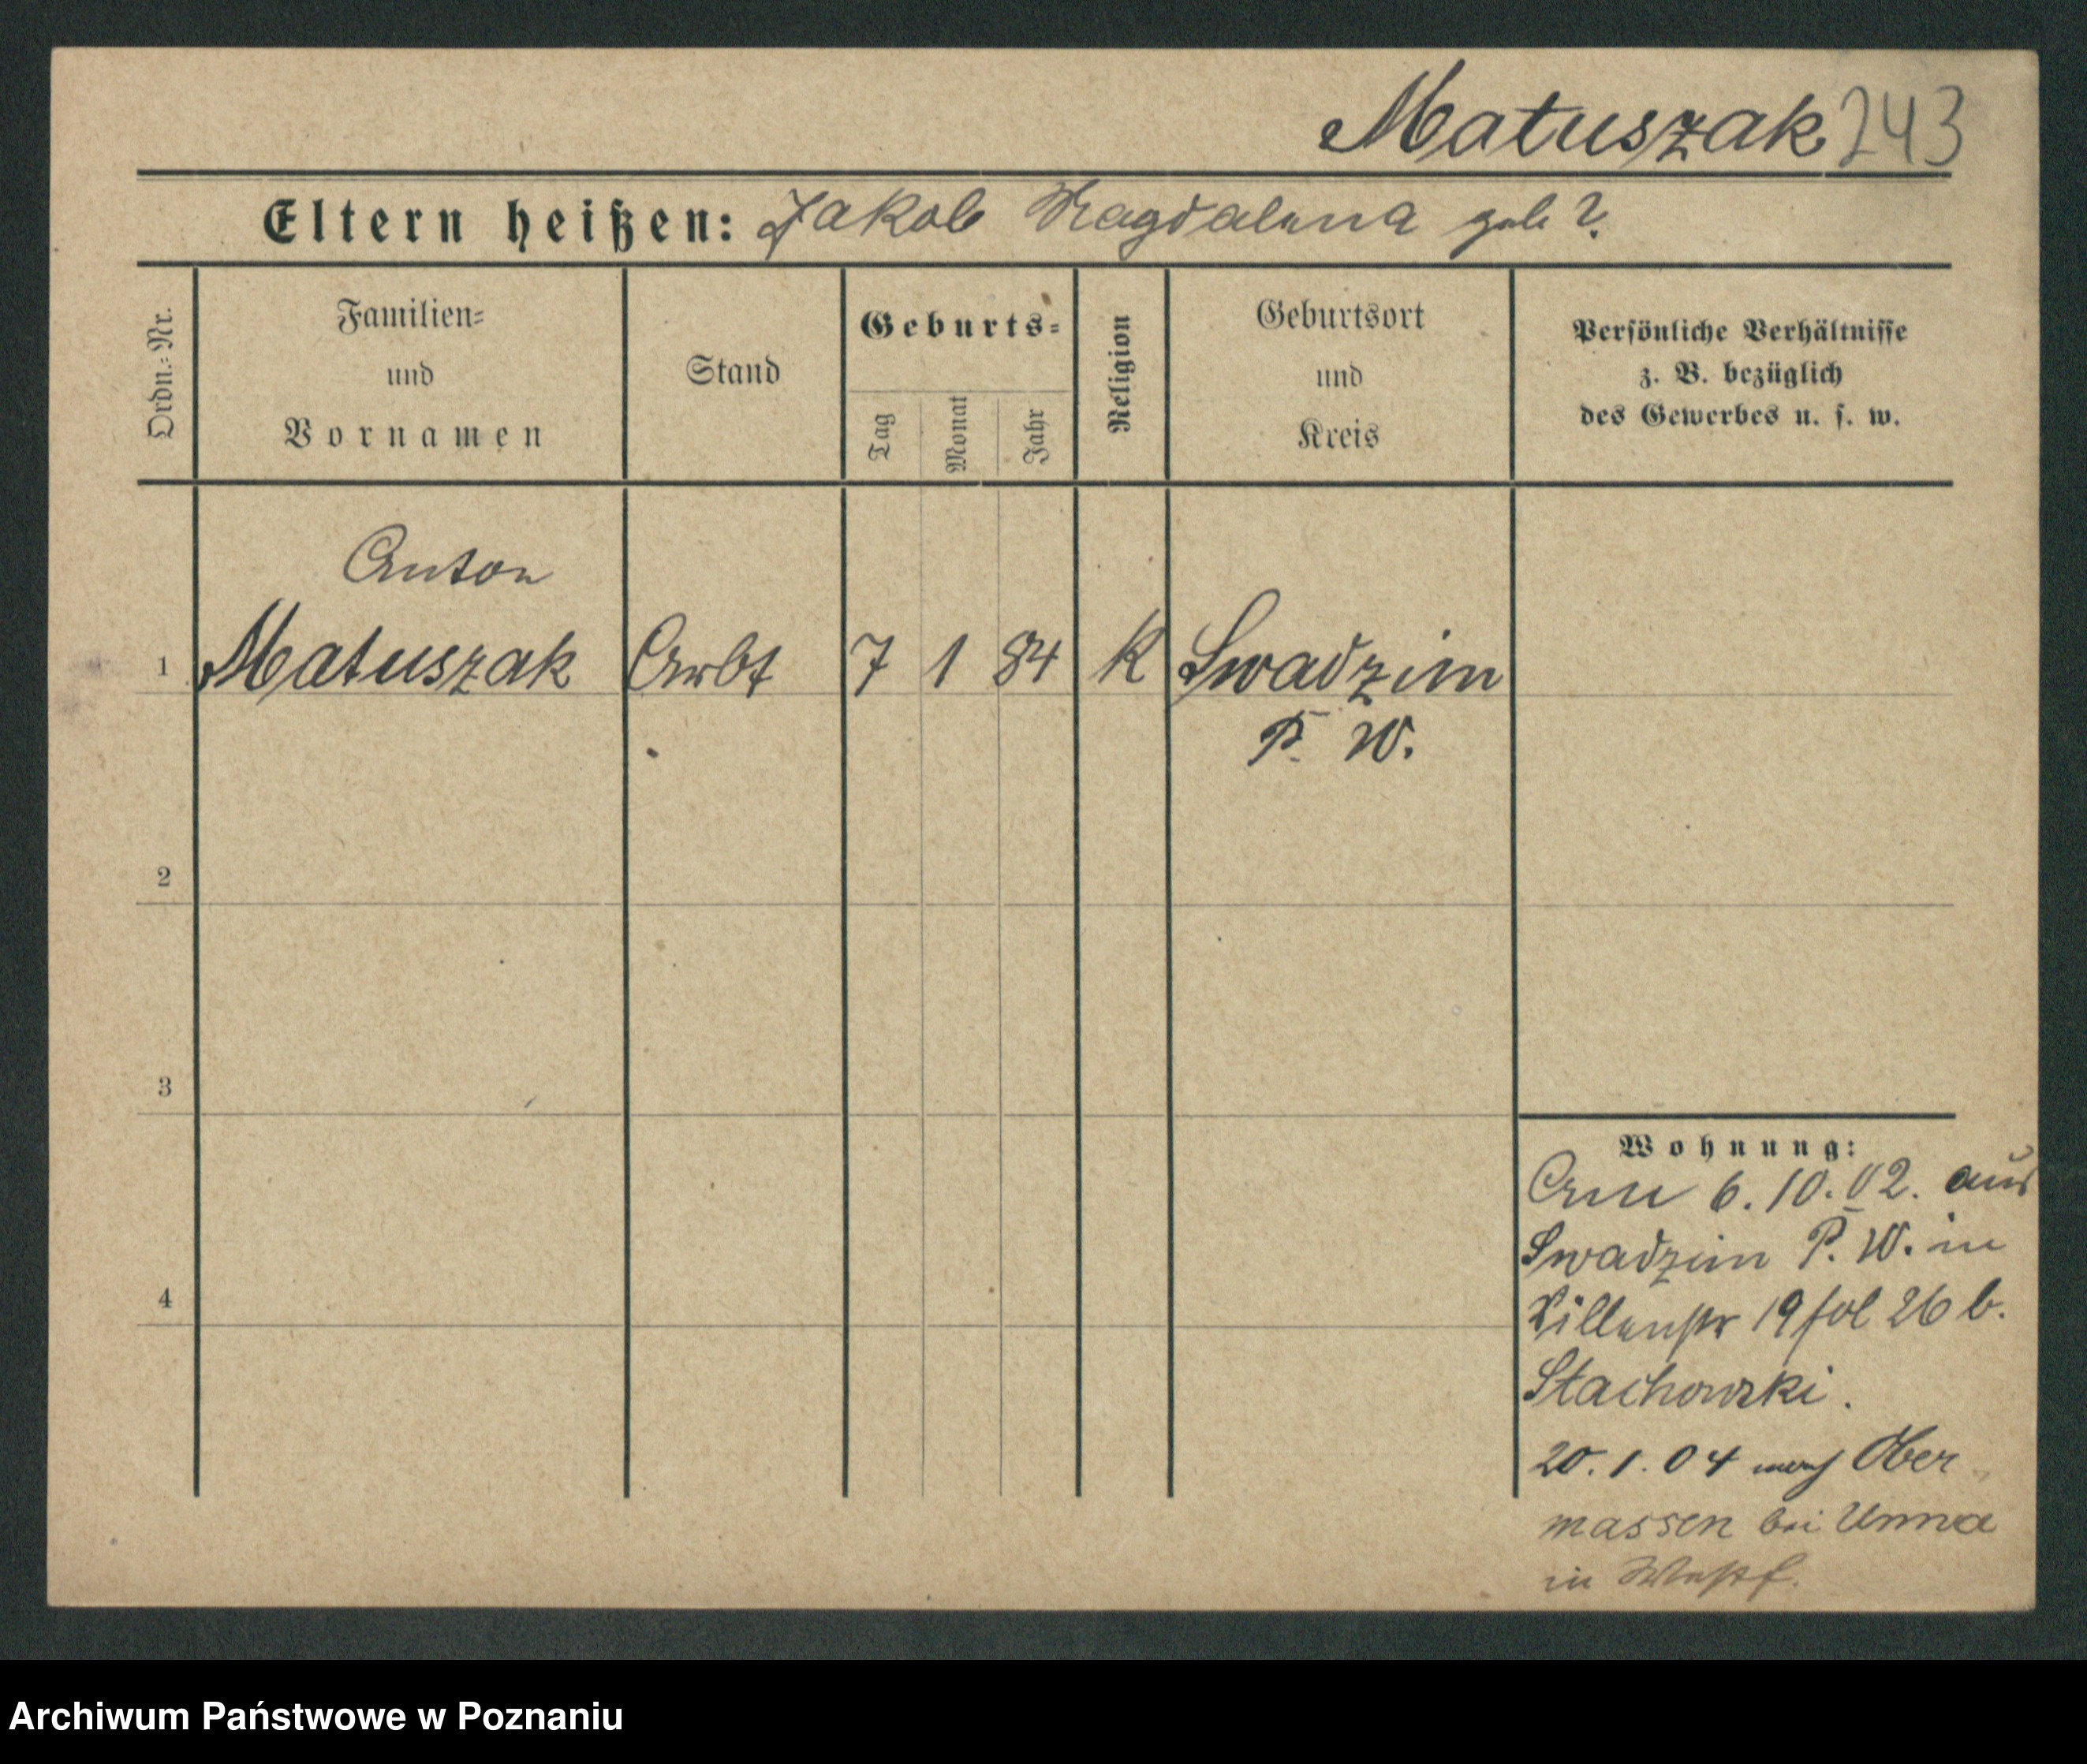 Matuszak 243
Eltern heißen: Jakob Magdalena geb ?
Ordn.=Nr.
Familien=
und
Vornamen
Stand
Geburts=
Tag
Monat
Jahr
Religion
Geburtsort
und
Kreis
Persönliche Verhältnisse
z. B. bezüglich
des Gewerbes u. s. w.
Anton
1 Matuszak Arbt 7 1 84 K Swadzim
P. W.
2
3
4
Wohnung:
6.10.02. aus
Swadzim P. W. in
19 fol 26 b.
Stachowski.
20.1.04 nach Ober
massen bei Unna
in Westf.
Archiwum Państwowe w Poznaniu